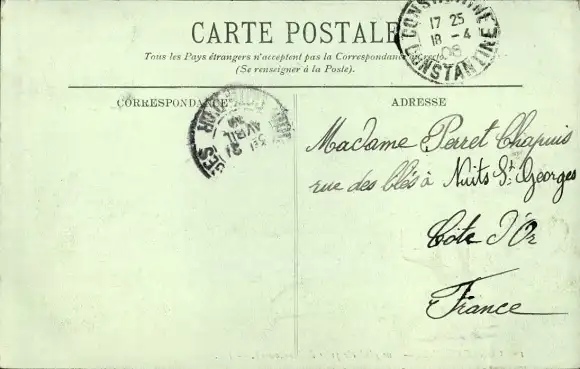 CARTE POSTALE
CONSTANTINE
17 25
18 -4
08
CONSTANTINE
Tous les Pays étrangers n'acceptent pas la Correspondance au recto.
(Se renseigner à la Poste).
CORRESPONDANCE
AVRIL
ADRESSE
Madame Perret Chapuis
rue des Clés à Nuits St. Georges
Côte d'Or
France